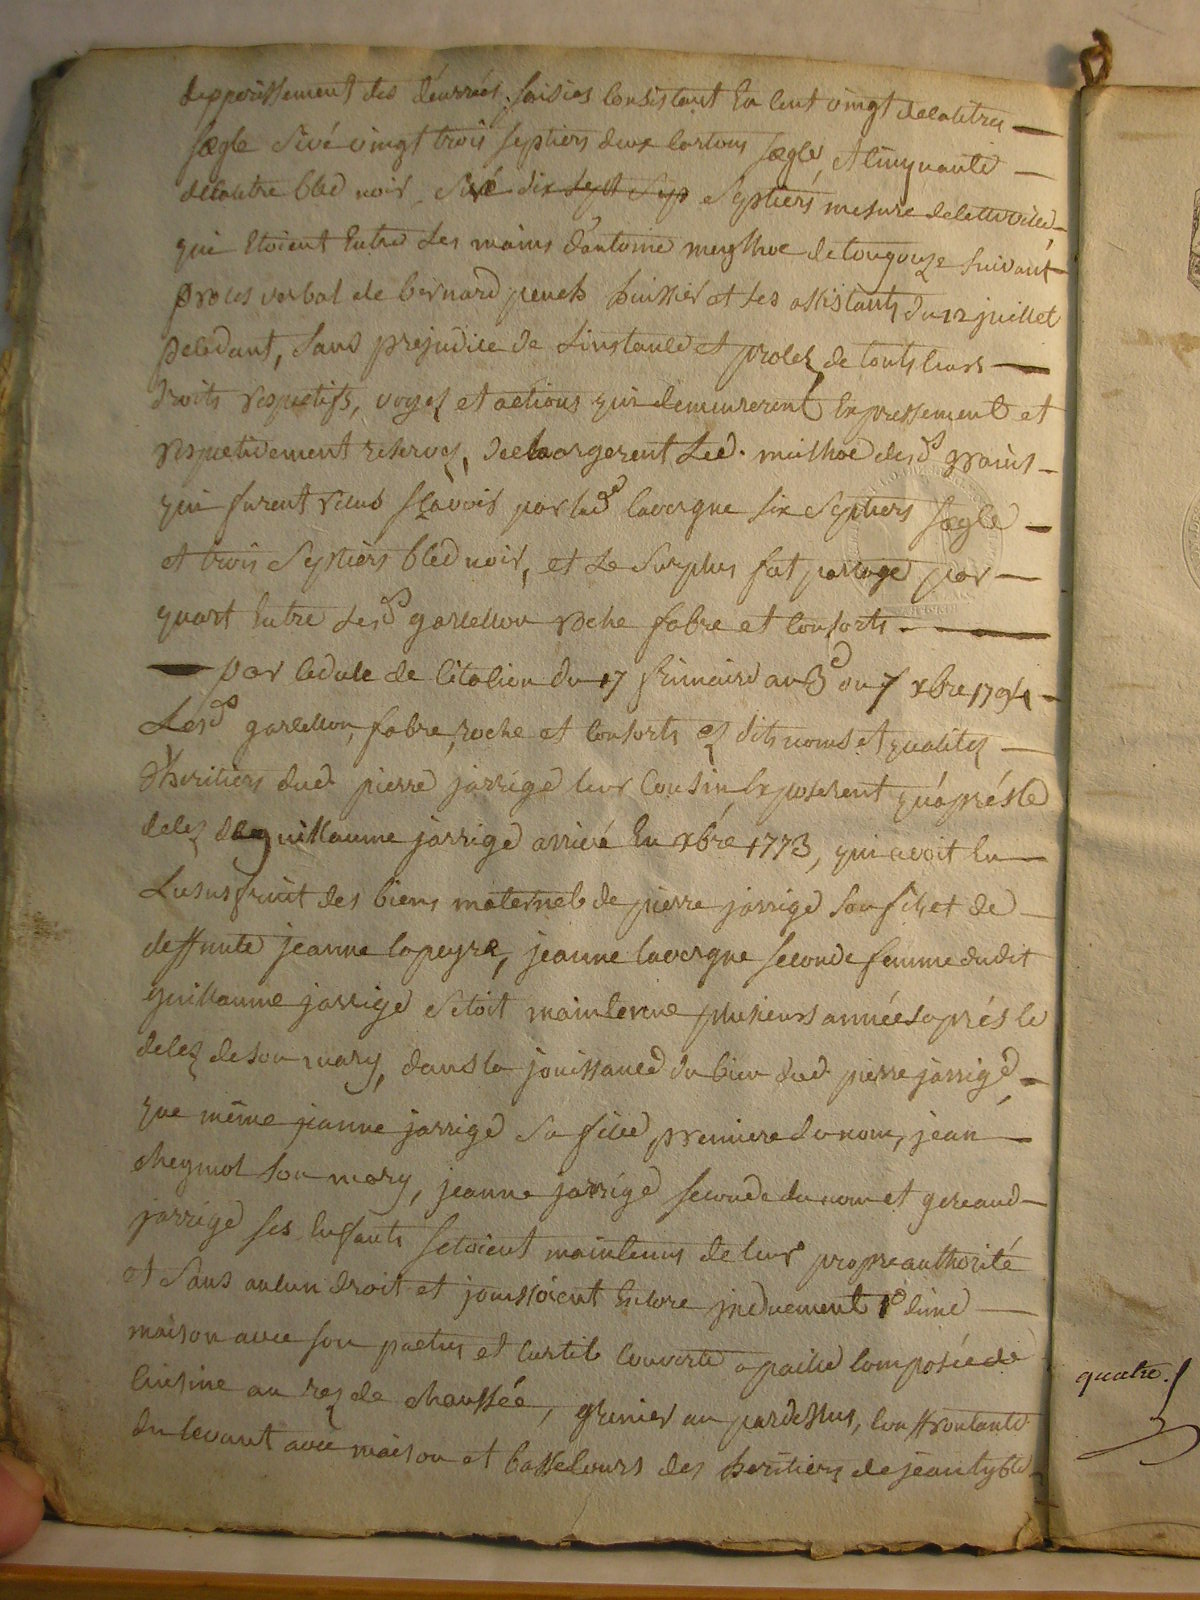 depperissement des denrrées saisies Consistant En Cent vingt decalitres
sægle sivé vingt trois septiers deux Cartons sægle, et Cinquante
décalitre bled noir, sivé dix sept sep Septiers mesure
qui Etoient Entre Les mains d'antoine suivant
proces verbal de bernard puech huissier et ses assistants du 12 juillet
précédant, sans préjudice de Linstance et procés de touts leurs
droits respectifs, voyes et actions qui demeurerent Expressement et
respectivement reservés, dechargerent Led. des dS grains
qui furent rendus sçavoir par lad lavergne six Septiers sægle
et trois Septiers bled noir, et Le Surplus fut partagé par
quart Entre Lesd garcellon roche fabre et Consorts
par Cedule de Citation du 17 frimaire an 3e ou 7 xbre 1794
Lesds garcellon, fabre, roche et Consorts es dits noms et qualités
d'heritiers dud pierre jarrige leur Cousin Exposerent qu'après Le
delez de guillaume jarrige arrivé En xbre 1773, qui avoit Eu
Lusufruit des biens maternels de pierre jarrige son fils et de
deffunte jeanne lapeyre, jeanne lavergne seconde femme dudit
guillaume jarrige setoit maintenue plusieurs années après le
delez de son mary, dans la jouissance du bien dud pierre jarrige,
que même jeanne jarrige sa fille, premiere du nom, jean
cheymol son mary, jeanne jarrige seconde du nom et gereaud
jarrige ses Enfants setoient maintenus de leur propre authorité
et Sans aucun droit et jouissoient Encore induement 1° d'une
maison avec son patus et Curtil Couverte a paille Composée de
Cuisine au rez de chaussée, grenier au pardessus, Conffrontante
du levant avec maison et bassecours des heritiers de jean
quatre.